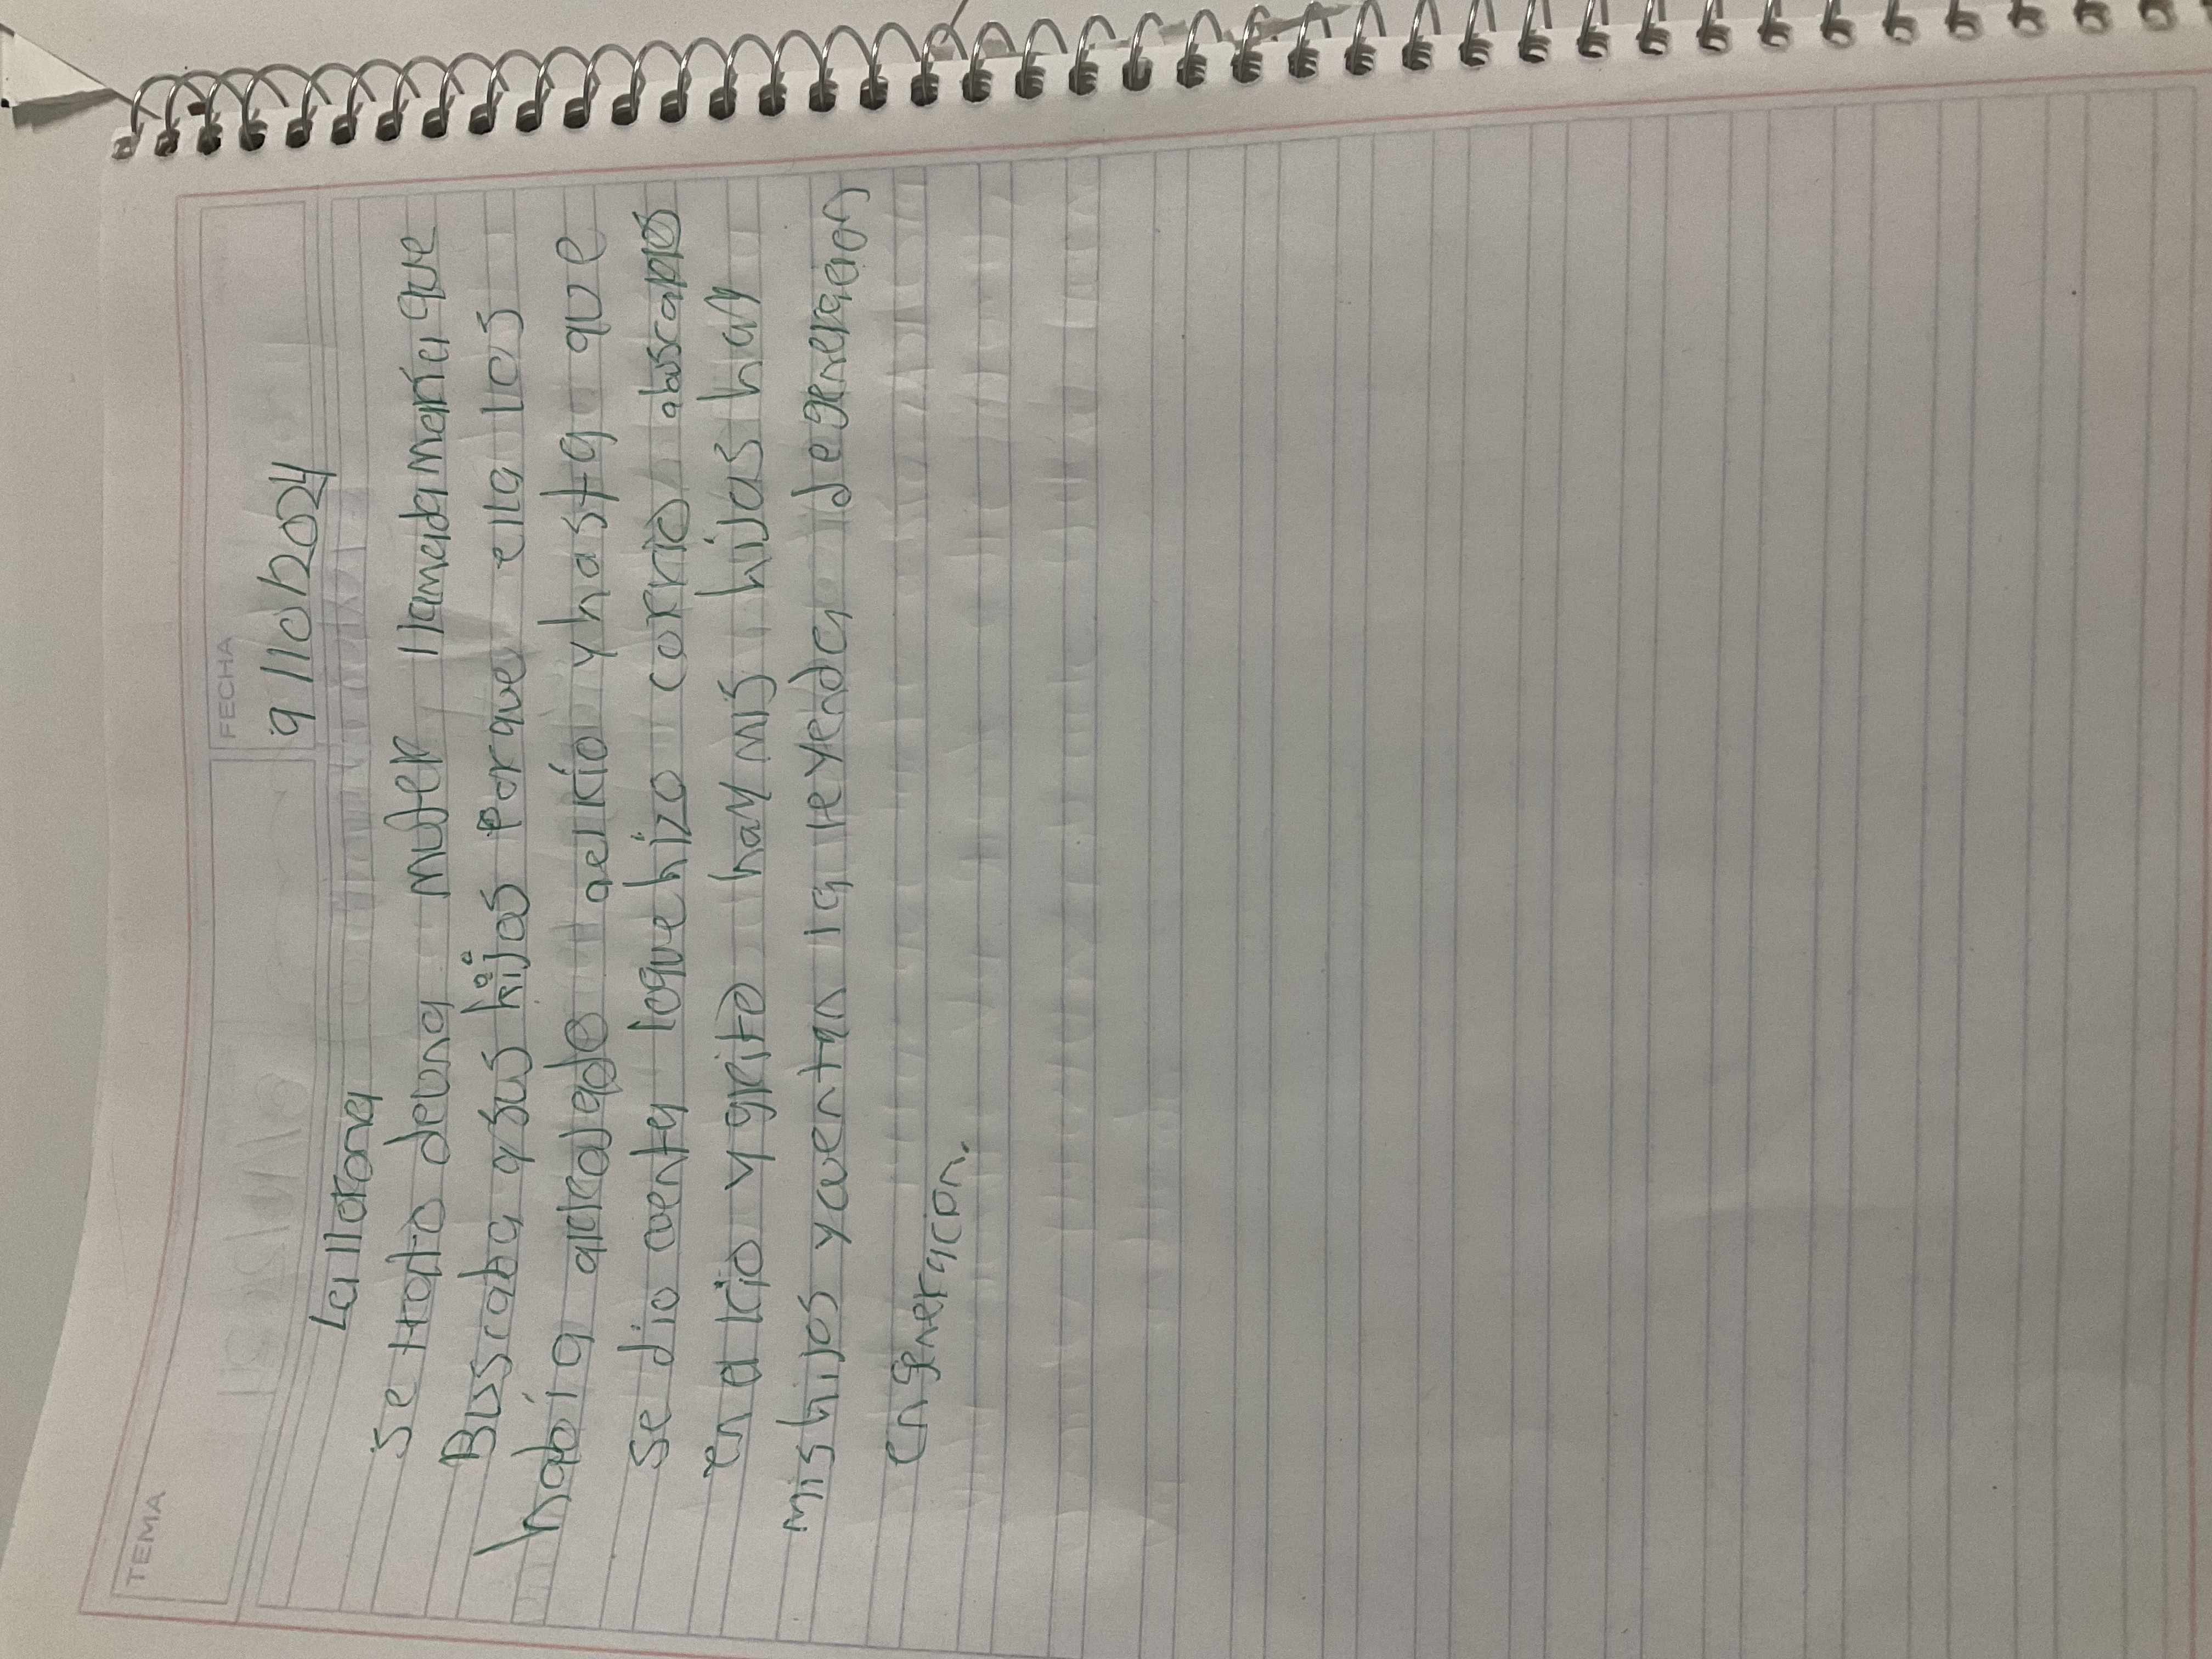 TEMA
FECHA
9/10/2024
La llorona
Se trató de una mujer llamada maría que
Buscaba a sus hijos Porque ella los
había arrojado al río y hasta que
se dio cuenta lo que hizo corrió
en el río y gritó hay mis hijos hay
mis hijos y cuentan la leyenda de generación
en generacion.